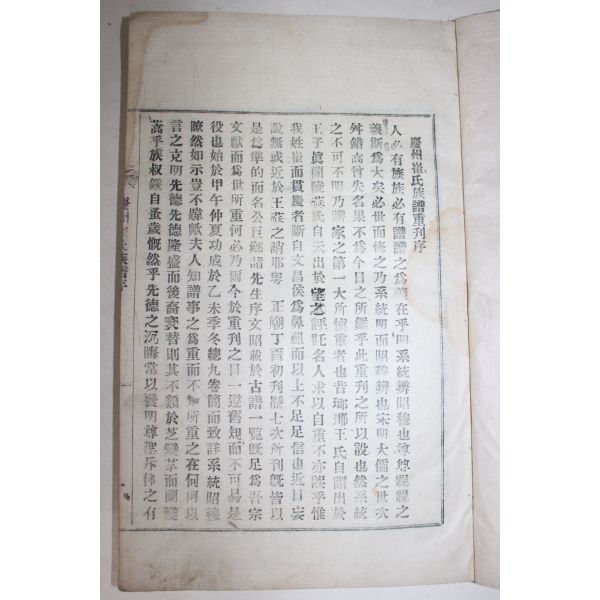 慶州崔氏族譜重刊序
人必有族族必有譜譜之爲義在乎明系統辨昭穆也尊尊親親之
義斯爲大矣必世而修之乃系統明而昭穆辨也宋明大儒之世次
舛錯高曾失名果不爲今日之所鑑乎此重刊之所以設也然系統
之不可不明乃譜家之第一大所愼重者也昔瑯琊王氏自謂出於
王子眞蘭陵蕭氏自云出於望之誣託名人求以自重不亦誤乎惟
我姓崔而貫慶者斷自文昌侯爲鼻祖而以上不足足信也近日妄
說無或近於王蕭之誚耶粤 正廟丁酉初刊歷七次所刊旣皆以
是爲準的而名公巨鄕諸先生序文昭載於古譜一覽旣足爲吾宗
文獻而爲世所重何必乃爾今於重刊之日一遵舊規而不可易是
役也始於甲午仲夏功成於乙未季冬總九卷簡而致詳系統昭穆
瞭然如示豈不韙歟夫人知譜事之爲重而不 所重之在何何以
言之克明先德先德隆盛而後裔 替則其不類於芝變 而蘭變
蒿乎族叔 自蚤歲慨然乎先德之沉晦常以 明尊聖斥 之有